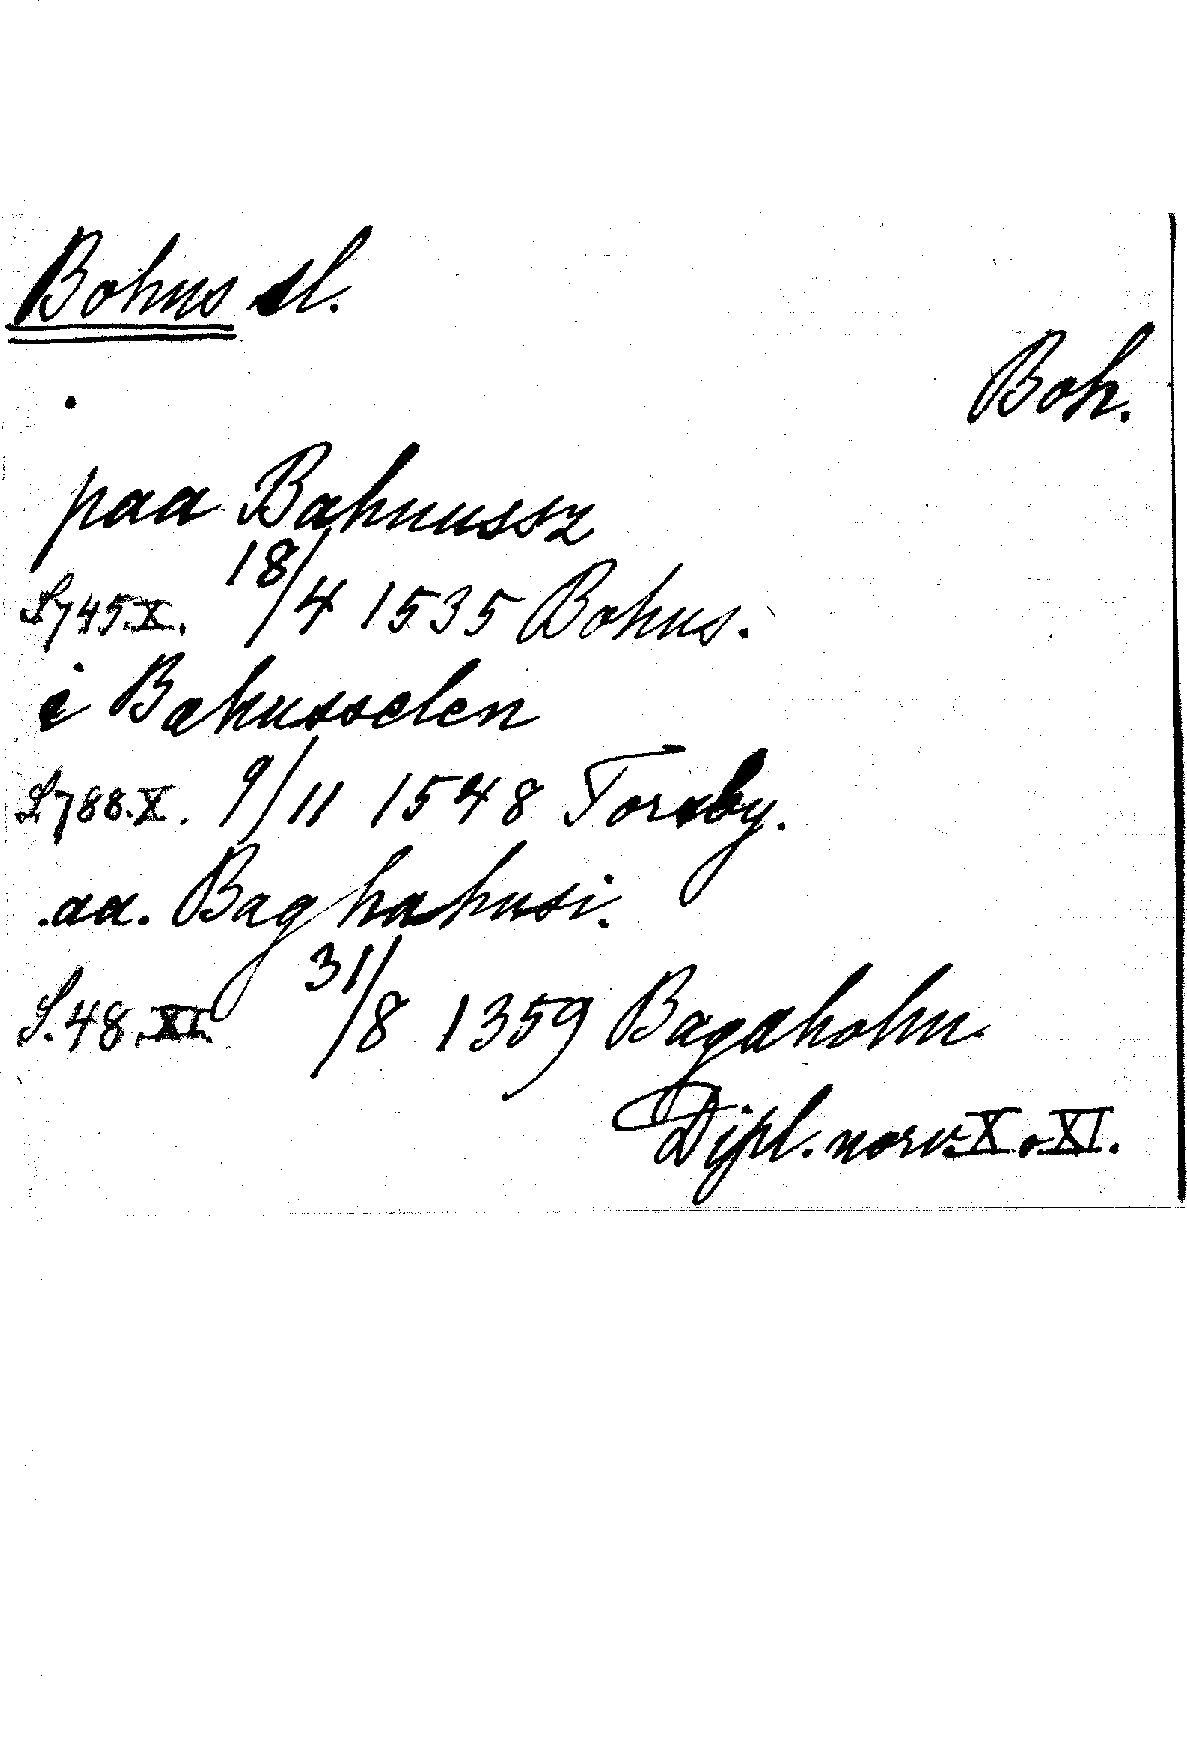 Bohus sl.
Boh.
paa Bahnussz
S. 745 X. 18/4 1535 Bohus.
i Bahusselen
S. 788. X. 9/11 1548 Torsby.
.aa. Baghahusi.
S. 48. XI. 31/8 1359 Bagaholm.
Dipl. norv. X o. XI.